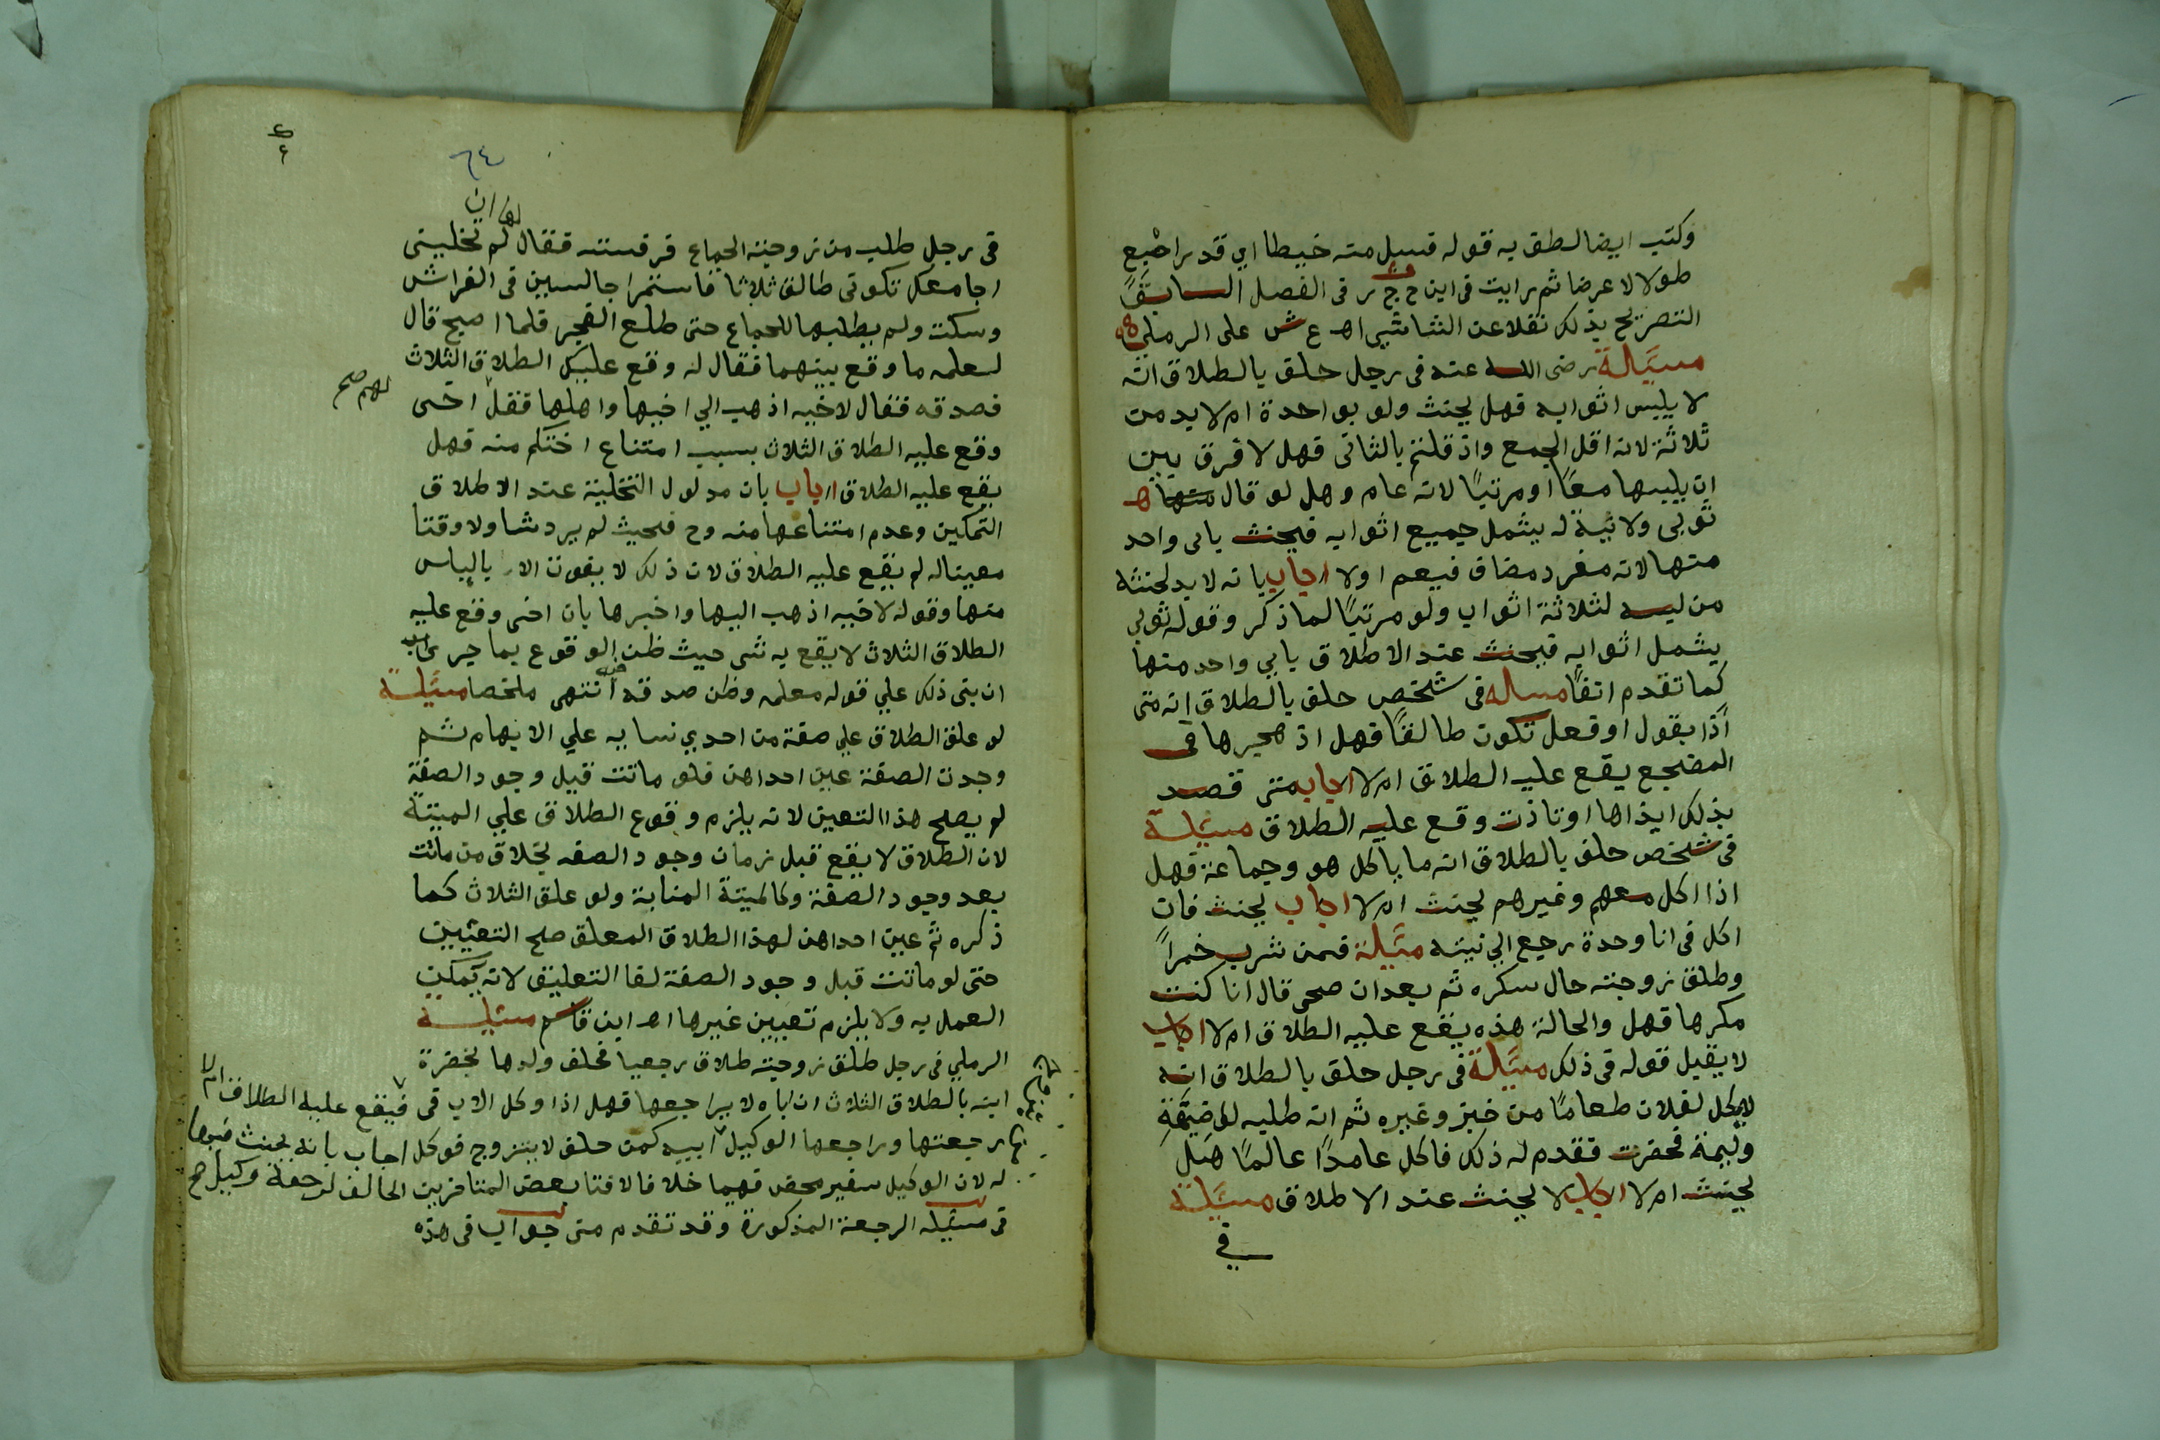 وكتب ايضا لطق به قوله فسيل منه خيطا اي قدر اصبع
طولا لا عرضا ثم رايت في ابن حج ر في الفصل السابق
التصريح بذلك نقلا عن الشاشي اه ع ش على الرملي
مسئلة رضى الله عنه في رجل حلف بالطلاق انه
لا يلبس اثوابه فهل يحنث ولو بواحدة ام لا بد من
ثلاثة لانه اقل الجمع واذ قلتم بالثاني فهل لا فرق بين
ان يلبسها معًا او مرتبًا لانه عام وهل لو قال
ثوبي ولا نية له يشمل جميع اثوابه فيحنث باى واحد
منها لانه مفرد مضاف فيعم او لا اجاب بانه لا بد لحنثه
من لبسه لثلاثة اثواب ولو مرتبًا لما ذكر وقوله ثوبي
يشمل اثوابه فيحنث عند الاطلاق باي واحد منها
كما تقدم انفًا مساله في شخص حلف بالطلاق انه متى
أذا بقول او فعل تكون طالقًا فهل اذ هجرها في
المضجع يقع عليه الطلاق ام لا اجاب متى قصد
بذلك ايذاها او تاذت وقع عليه الطلاق مسئلة
في شخص حلف بالطلاق انه ما ياكل هو وجماعة فهل
اذا اكل معهم وغيرهم يحنث ام لا اجاب يحنث فان
اكل في انا وحدة رجع الي نيته مسئلة فمن شرب خمرًا
وطلق زوجته حال سكره ثم بعد ان صحى قال انا كنت
مكرها فهل والحالة هذه يقع عليه الطلاق ام لا اجاب
لا يقبل قوله في ذلك مسئلة في رجل حلق بالطلاق انه
لا ياكل لفلان طعامًا من خبز وغيره ثم انه طلبه
وليمة فحضرت فقدم له ذلك فاكل عامدًا عالمًا هل
يحنث ام لا اجاب لا يحنث عند الاطلاق مسئلة
في
٦٤
ان
في رجل طلب من زوجته الجماع فرفسته فقال لها لم تخليني
اجامعك تكوني طالق ثلاثا فاستمرا جالسين في الفراش
وسكت ولم يطلبها للجماع حتى طلع الفجر فلما اصبح قال
لمعلمه ما وقع بينهما فقال له وقع عليك الطلاق الثلاث
فصدقه فقال لاخيه اذهب الي اخيها واهلها فقل اخى
لهم صح
وقع عليه الطلاق الثلاث بسبب امتناع اختكم منه فهل
يقع عليه الطلاق اجاب بان مدلول التخلية عند الاطلاق
التمكين وعدم امتناعها منه وح فحيث لم يرد شا ولا وقتا
معينا له لم يقع عليه الطلاق لان ذلك لا يفوت الا بالياس
منها وقوله لاخيه اذهب اليها واخبرها بان اخى وقع عليه
الطلاق الثلاث لا يقع به شى حيث ظن الوقوع بما جرى
ان بنى ذلك علي قوله معلمه وظن صدقه انتهى ملخصا مسئلة
لو علق الطلاق علي صفة من احدي نسايه علي الابهام ثم
وجدت الصفة عين احداهن فلو ماتت قبل وجود الصفة
لم يصلح هذا التعين لانه يلزم وقوع الطلاق علي الميتة
لان الطلاق لا يقع قبل زمان وجود الصفه بخلاق من ماتت
بعد وجود الصفة وكالميتة المنابة ولو علق الثلاث كما
ذكره ثم عين احداهن لهذا الطلاق المعلق صلح التعيين
حتى لو ماتت قبل وجود الصفة لغا التعليق لانه يمكن
العمل به ولا يلزم تعيين غيرها اه ابن قاسم مسئلة
الرملي في رجل طلق زوجته طلاق رجعيا فحلف ولدها بحضرة
ابنه بالطلاق الثلاث ان اباه لا يراجعها فهل اذا وكل الاب في فيقع عليه الطلاق ام لا
رجعتها وراجعها الوكيل ابيه كمن حلف لا يتزوج فوكل اجاب بانه يحنث
له لان الوكيل سفير محض فيهما خلافا لافتا بعض المتاخرين الحالف لرجعة وكيل صح
في مسئله الرجعة المذكورة وقد تقدم متى جواب في هذه